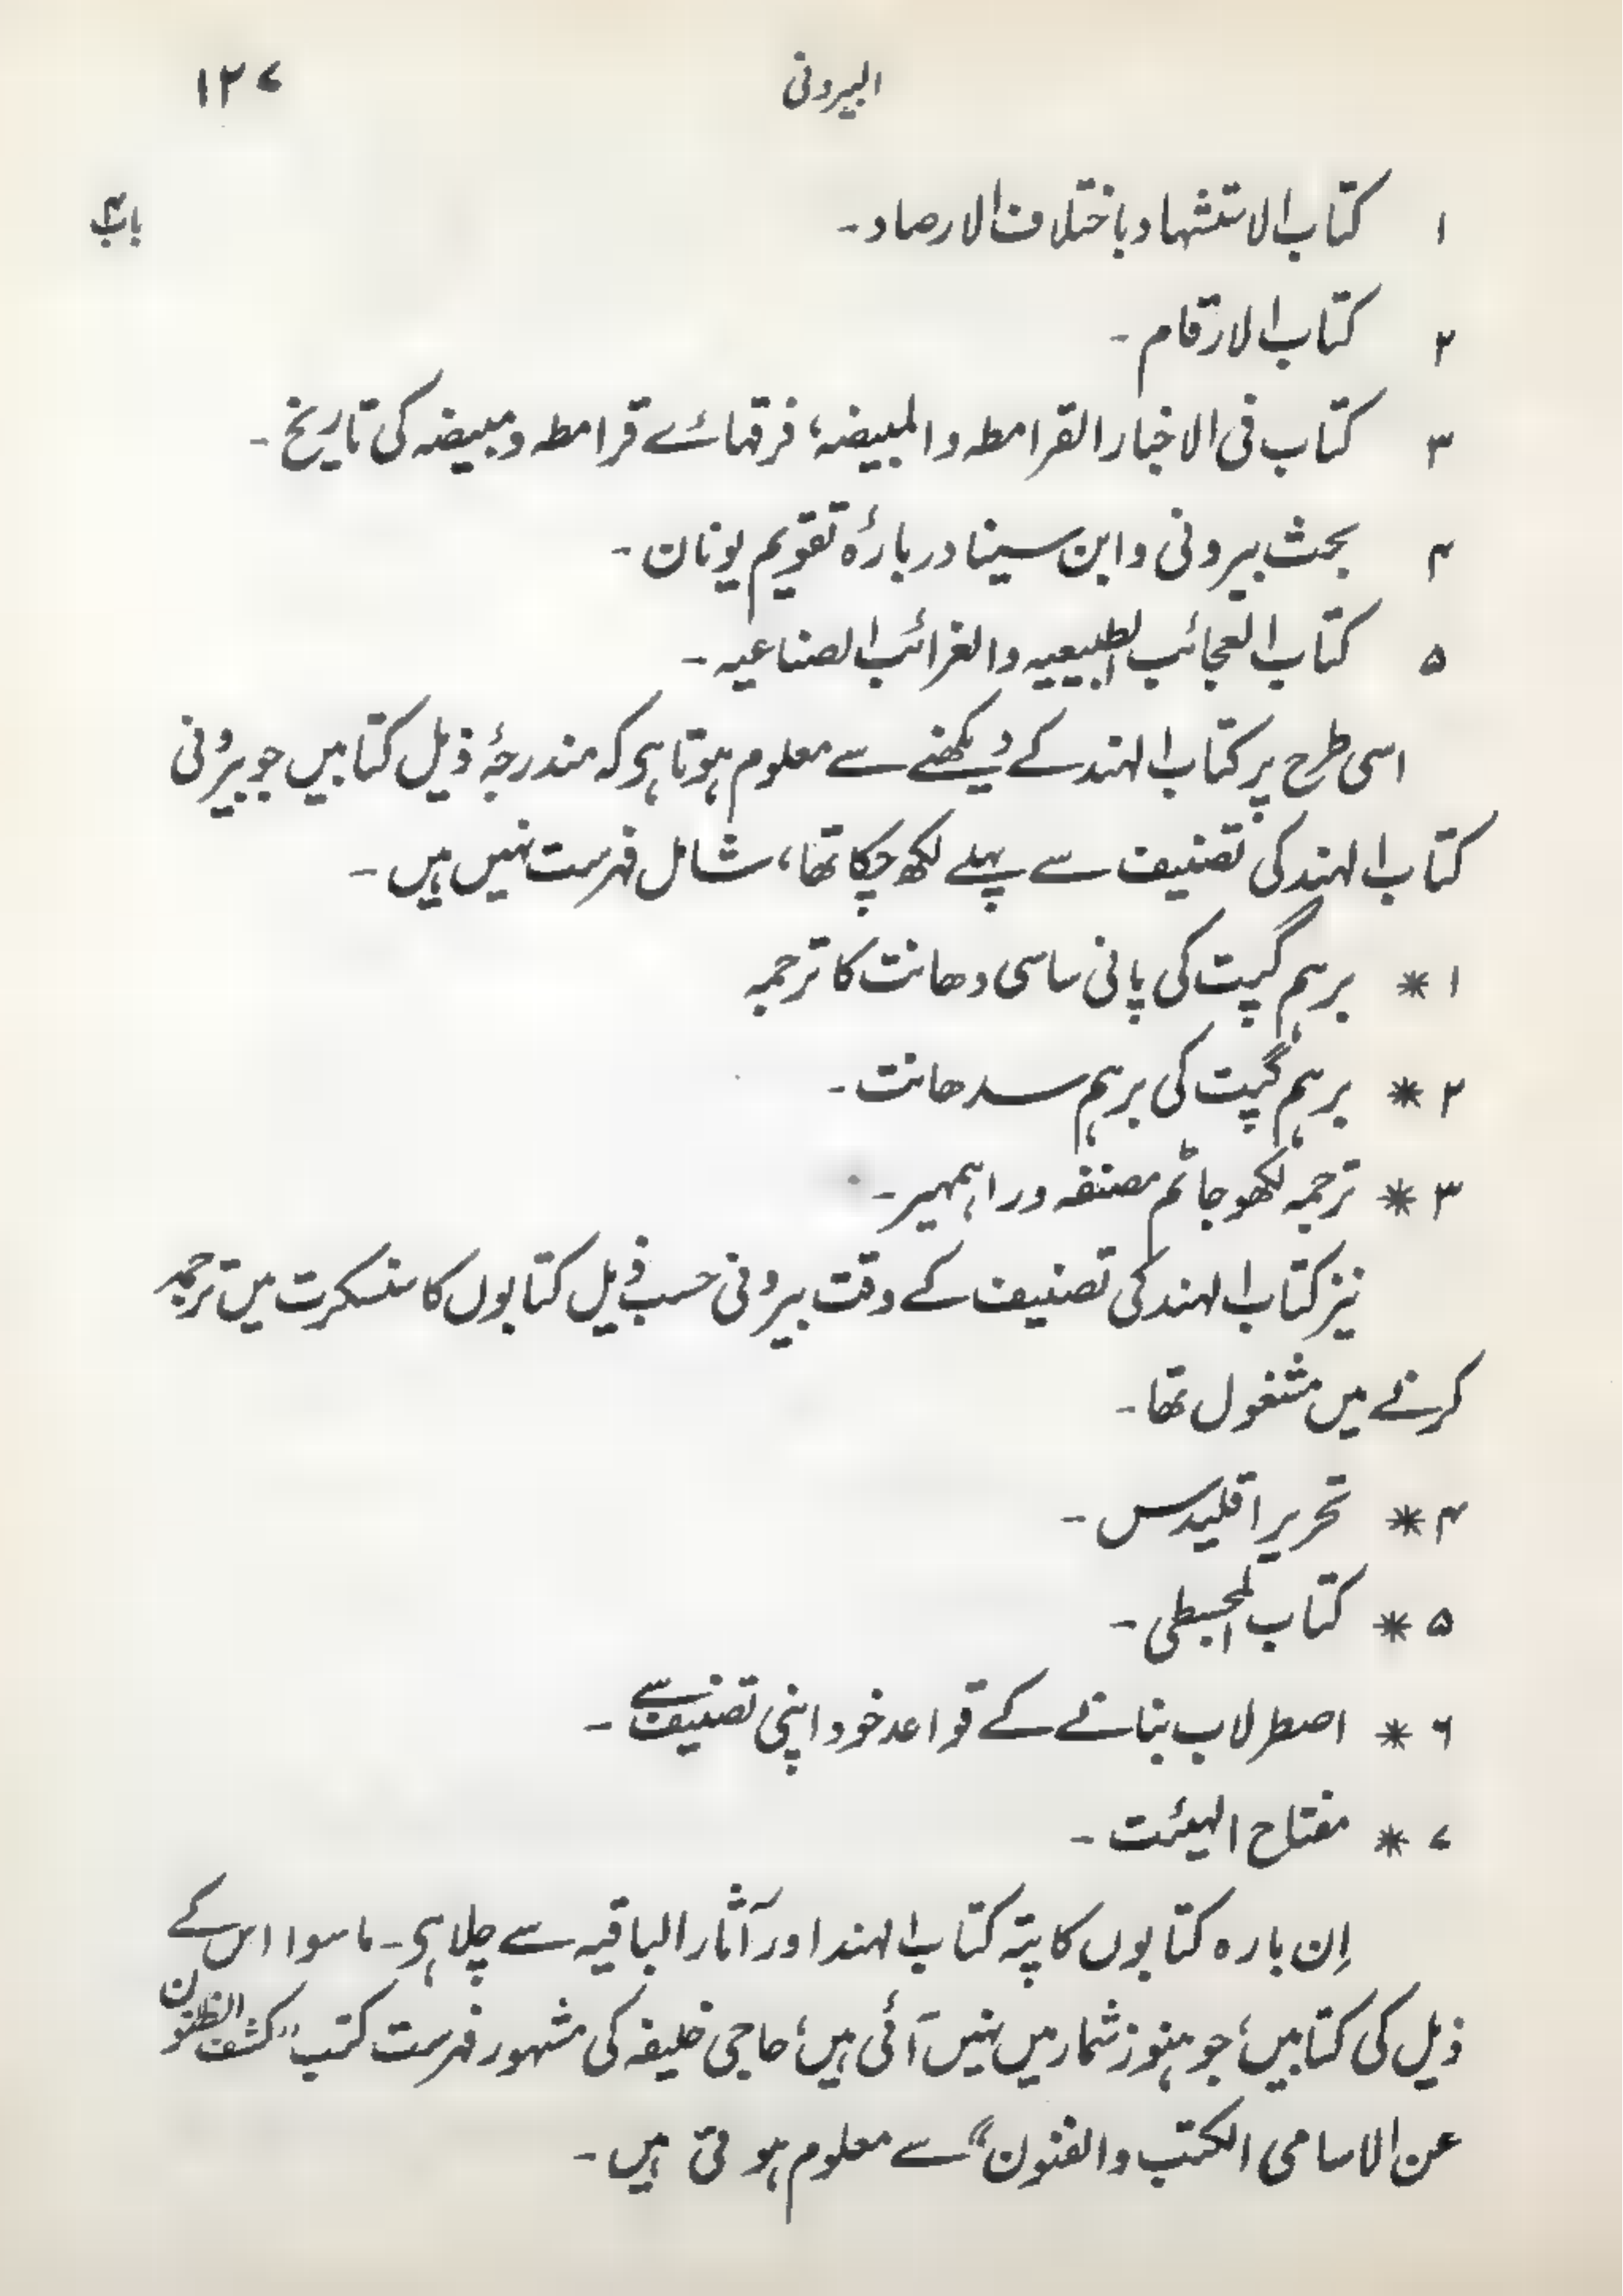 البیرونی ۱۲۷
باب۴
۱ کتاب الاستشہاد باختلاف الارصاد۔
۲ کتاب الارقام۔
۳ کتاب فی الاخبار القرامطہ والمبیضہ، فرقہائے قرامطہ ومبیضہ کی تاریخ۔
۴ بحث بیرونی وابن سینا دربارۂ تقویم یونان۔
۵ کتاب العجائب الطبیعیہ والغرائب الصناعیہ۔
اسی طرح پر کتاب الہند کے دیکھنے سے معلوم ہوتا ہی کہ مندرجۂ ذیل کتابیں جو بیرونی
کتاب الہند کی تصنیف سے پہلے لکھ چکا تھا، شامل فہرست نہیں ہیں۔
۱ * برہم گپت کی پانی ساسی دھانت کا ترجمہ
۲ * برہم گپت کی برہم سدھانت۔
۳ * ترجمہ لکھو جاٹم مصنفہ وراہمہیر۔
نیز کتاب الہند کی تصنیف کے وقت بیرونی حسب ذیل کتابوں کا سنسکرت میں ترجمہ
کرنے میں مشغول تھا۔
۴ * تحریر اقلیدس۔
۵ * کتاب المجسطی۔
۶ * اصطرلاب بنانے کے قواعد خود اپنی تصنیف سے۔
۷ * مفتاح الہیئت۔
اِن بارہ کتابوں کا پتہ کتاب الہند اور آثار الباقیہ سے چلا ہی۔ ماسوا اس کے
ذیل کی کتابیں، جو ہنوز شمار میں نہیں آئی ہیں، حاجی خلیفہ کی مشہور فہرست کتب "کشف الظنون
عن الاسامی الکتب والفنون" سے معلوم ہوتی ہیں۔